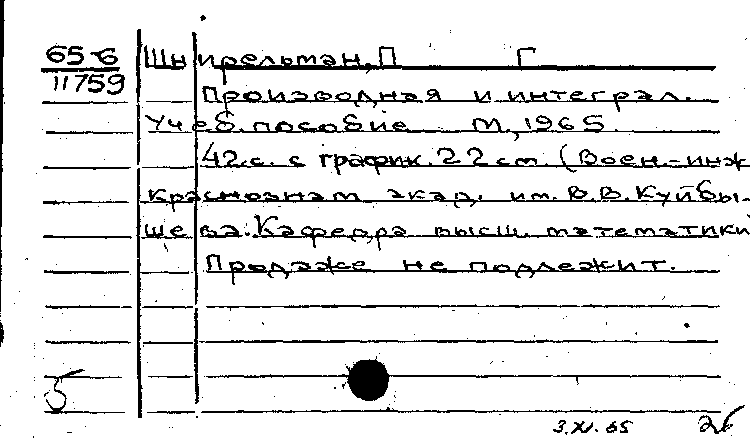 65-6
11759
Шнирельман, П Г
Производная и интеграл.
Учеб. пособие М, 1965
42 с. с график. 22 см (Воен.-инж
краснознам акад. им. В. В. Куйбы-
шева. Кафедра высш. математики
Продаже не подлежит.
5
3.XI.65